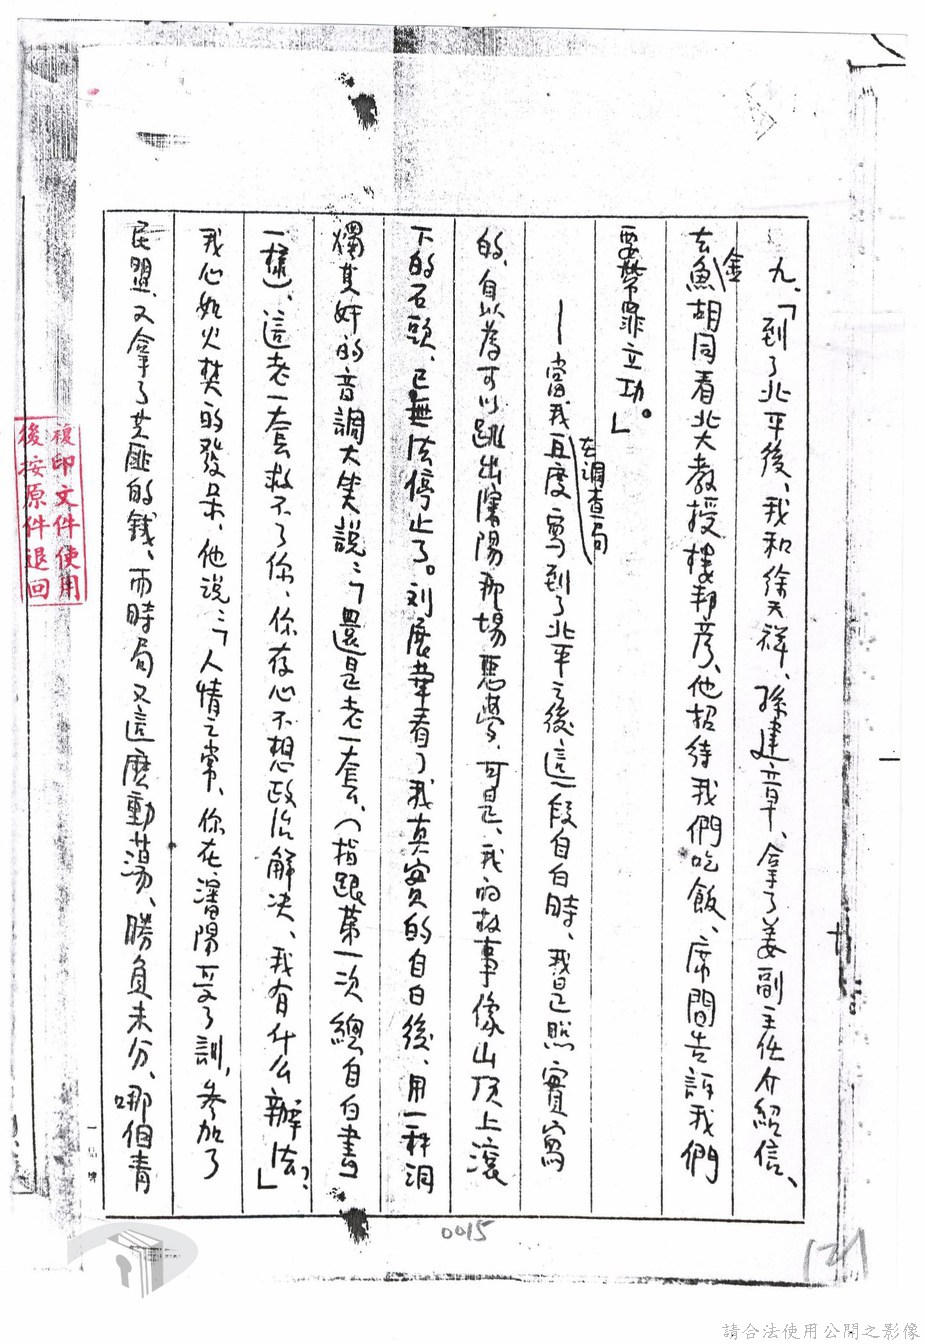 九、「到了北平後、我和徐天祥、孫建章、拿了姜副主任介紹信、
去金魚胡同看北大教授樓邦彥、他招待我們吃飯、席間告訴我們
要帶罪立功。」
—當我在調查局再度寫到了北平之後這一段自白時、我已照實寫
的、自以為可以跳出瀋陽那場惡夢、可是、我的故事像山頂上滾
下的石頭、已無法停止了。刘展華看了我真實的自白後、用一種洞
獨其奸的音調大笑說：「還是老一套、（指跟第一次總自白書
一樣）、這老一套救不了你、你存心不想政治解決、我有什么辦法？」
我心如火焚的發呆、他說：「人情之常、你在瀋陽受了訓，參加了
民盟、又拿了共匪的錢、而時局又這麼動蕩、勝負未分、哪個青
複印文件使用
後按原件退回
0015
(2)
請合法使用公開之影像